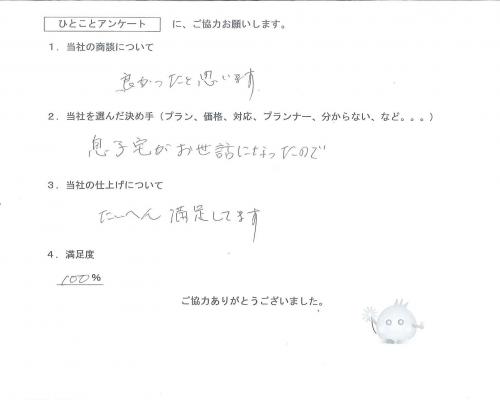 ひとことアンケート に、ご協力お願いします。
1．当社の商談について
良かったと思います
2．当社を選んだ決め手（プラン、価格、対応、プランナー、分からない、など。。。）
息子宅がお世話になったので
3．当社の仕上げについて
たいへん 満足してます
4．満足度
100%
ご協力ありがとうございました。